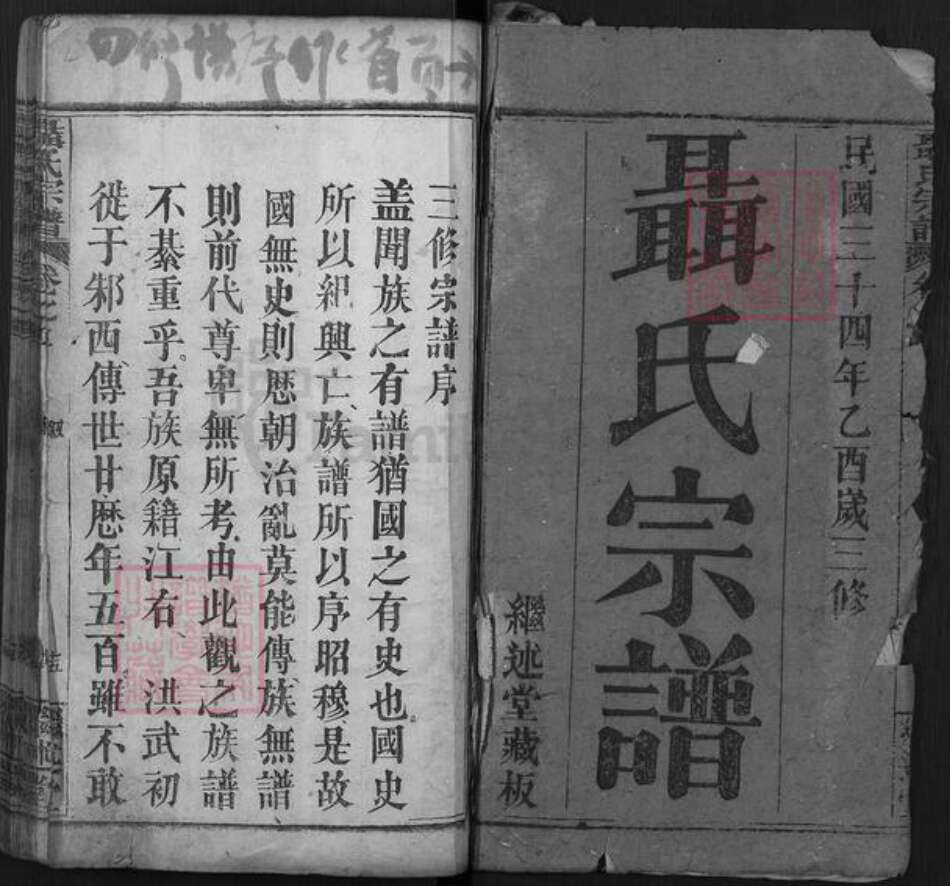 民國三十四年乙酉歲三修
聶氏宗譜
繼述堂藏板
三修宗譜序
盖聞族之有譜猶國之有史也國史
所以紀興亡族譜所以序昭穆是故
國無史則歷朝治亂莫能傳族無譜
則前代尊卑無所考由此觀之族譜
不綦重乎吾族原籍江右 洪武初
徙于邾西傳世廿歷年五百雖不敢
聶氏宗譜